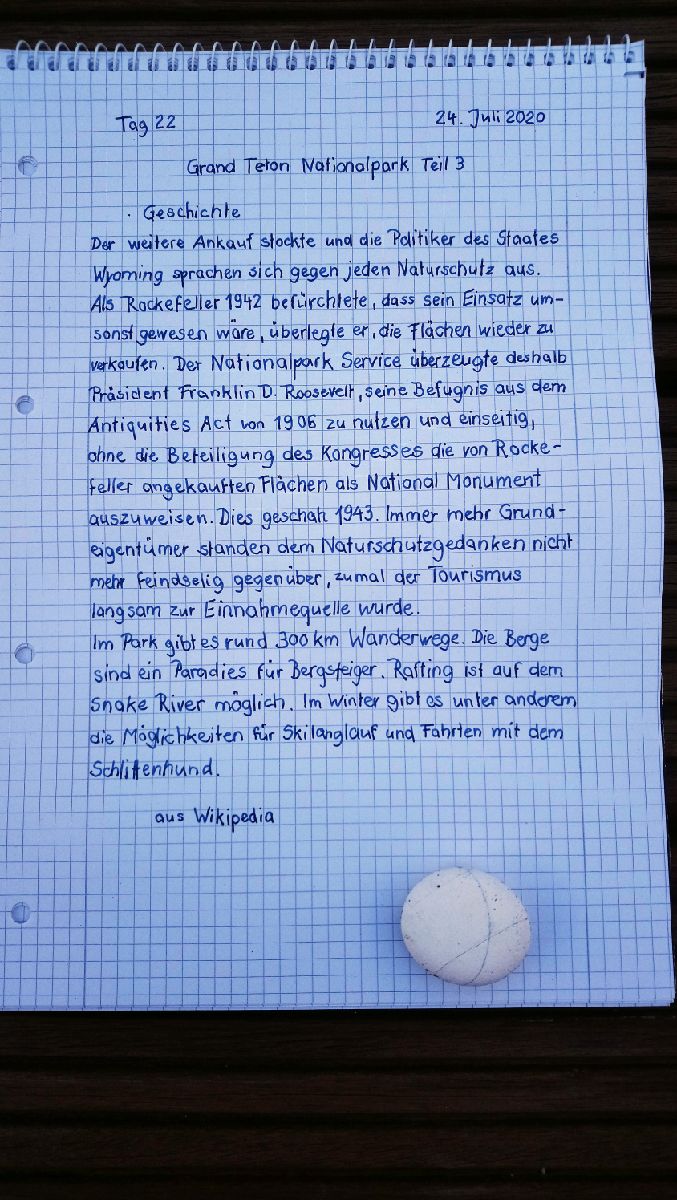 Tag 22 24. Juli 2020
Grand Teton Nationalpark Teil 3
. Geschichte
Der weitere Ankauf stockte und die Politiker des Staates
Wyoming sprachen sich gegen jeden Naturschutz aus.
Als Rockefeller 1942 befürchtete, dass sein Einsatz um-
sonst gewesen wäre, überlegte er, die Flächen wieder zu
verkaufen. Der Nationalpark Service überzeugte deshalb
Präsident Franklin D. Roosevelt, seine Befugnis aus dem
Antiquities Act von 1906 zu nutzen und einseitig,
ohne die Beteiligung des Kongresses die von Rocke-
feller angekauften Flächen als National Monument
auszuweisen. Dies geschah 1943. Immer mehr Grund-
eigentümer standen dem Naturschutzgedanken nicht
mehr feindselig gegenüber, zumal der Tourismus
langsam zur Einnahmequelle wurde.
Im Park gibt es rund 300 km Wanderwege. Die Berge
sind ein Paradies für Bergsteiger. Rafting ist auf dem
Snake River möglich. Im Winter gibt es unter anderem
die Möglichkeiten für Skilanglauf und Fahrten mit dem
Schlittenhund.
aus Wikipedia